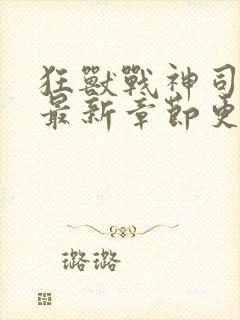 狂獸戰神司
最新章節更
璐璐